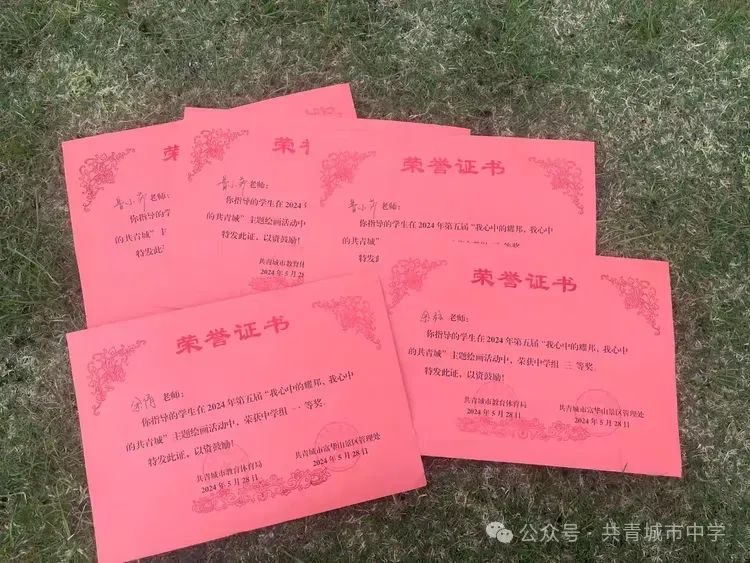 荣
老师：
你指导的学
的共青城”主
特发此证
荣誉
老师：
你指导的学生在2
的共青城”主题绘画活动中
特发此证，以资鼓励！
共青城市教育体
2024年5月28
荣誉证书
老师：
你指导的学生在2024年第五届“我心中的耀邦，我心中
的共青城”
等奖
特发
荣誉证书
老师：
你指导的学生在2024年第五届“我心中的耀邦，我心中
的共青城”主题绘画活动中，荣获中学组 三 等奖.
特发此证，以资鼓励！
共青城市教育体育局
2024年5月28日
共青城市富华山景区管理处
2024年5月28日
荣誉证书
老师：
你指导的学生在2024年第五届“我心中的耀邦，我心中
的共青城”主题绘画活动中，荣获中学组 一 等奖.
特发此证，以资鼓励！
共青城市教育体育局
2024年5月28日
共青城市富华山景区管理处
2024年5月28日
公众号·共青城市中学